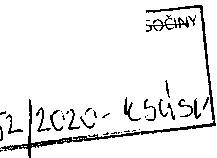 SOČINY
52/2020-KSÚSV